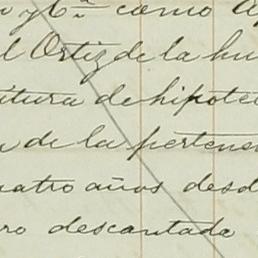 y Cª como
Ortiz de la
de hipote
de la pertene
uatro años desd
ro descontada